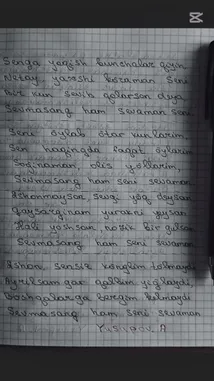 Senga yoqish bunchalar qiyin
Netay, yaxshi ko'raman seni
Bir kun sevib qolarson deya
Sevmasang ham sevaman seni.
Seni o'ylab o'tar kunlarim
Sen haqingda faqat o'ylarim
Sog'inaman, olis yo'llarim,
Sevmasang ham seni sevaman
Ishonmaysan sevgi yoq deysan
qaysarginam yurakni yeysan
Hali yoshsan, nozik bir gulsan
Sevmasang ham seni sevaman
Ishon, sensiz ko'nglim to'lmaydi
Ayriksam gar qalbim yig'laydi,
Boshqalarga bergim kelmaydi
Sevmasang ham seni sevaman
Yusupov. A